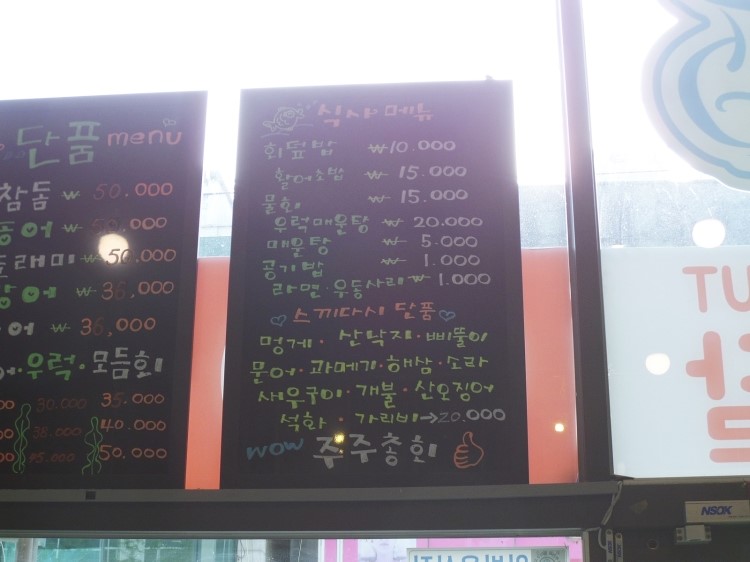 단품 menu
참돔 ₩ 50.000
₩ 50.000
도래미 ₩ 50.000
₩ 36,000
₩ 36,000
우럭·모듬회
30.000 35.000
38.000 40.000
45.000 50.000
식사메뉴
회덮밥 ₩10.000
활어초밥 ₩ 15.000
물회 ₩ 15.000
우럭매운탕 ₩ 20.000
매운탕 ₩ 5.000
공기밥 ₩ 1.000
라면·우동사리 ₩ 1.000
스끼다시 단품
멍게·산낙지·삐뚤이
문어·과메기·해삼·소라
새우구이·개불·산오징어
석화·가리비→20.000
WOW 주주총회
TU
NSOK